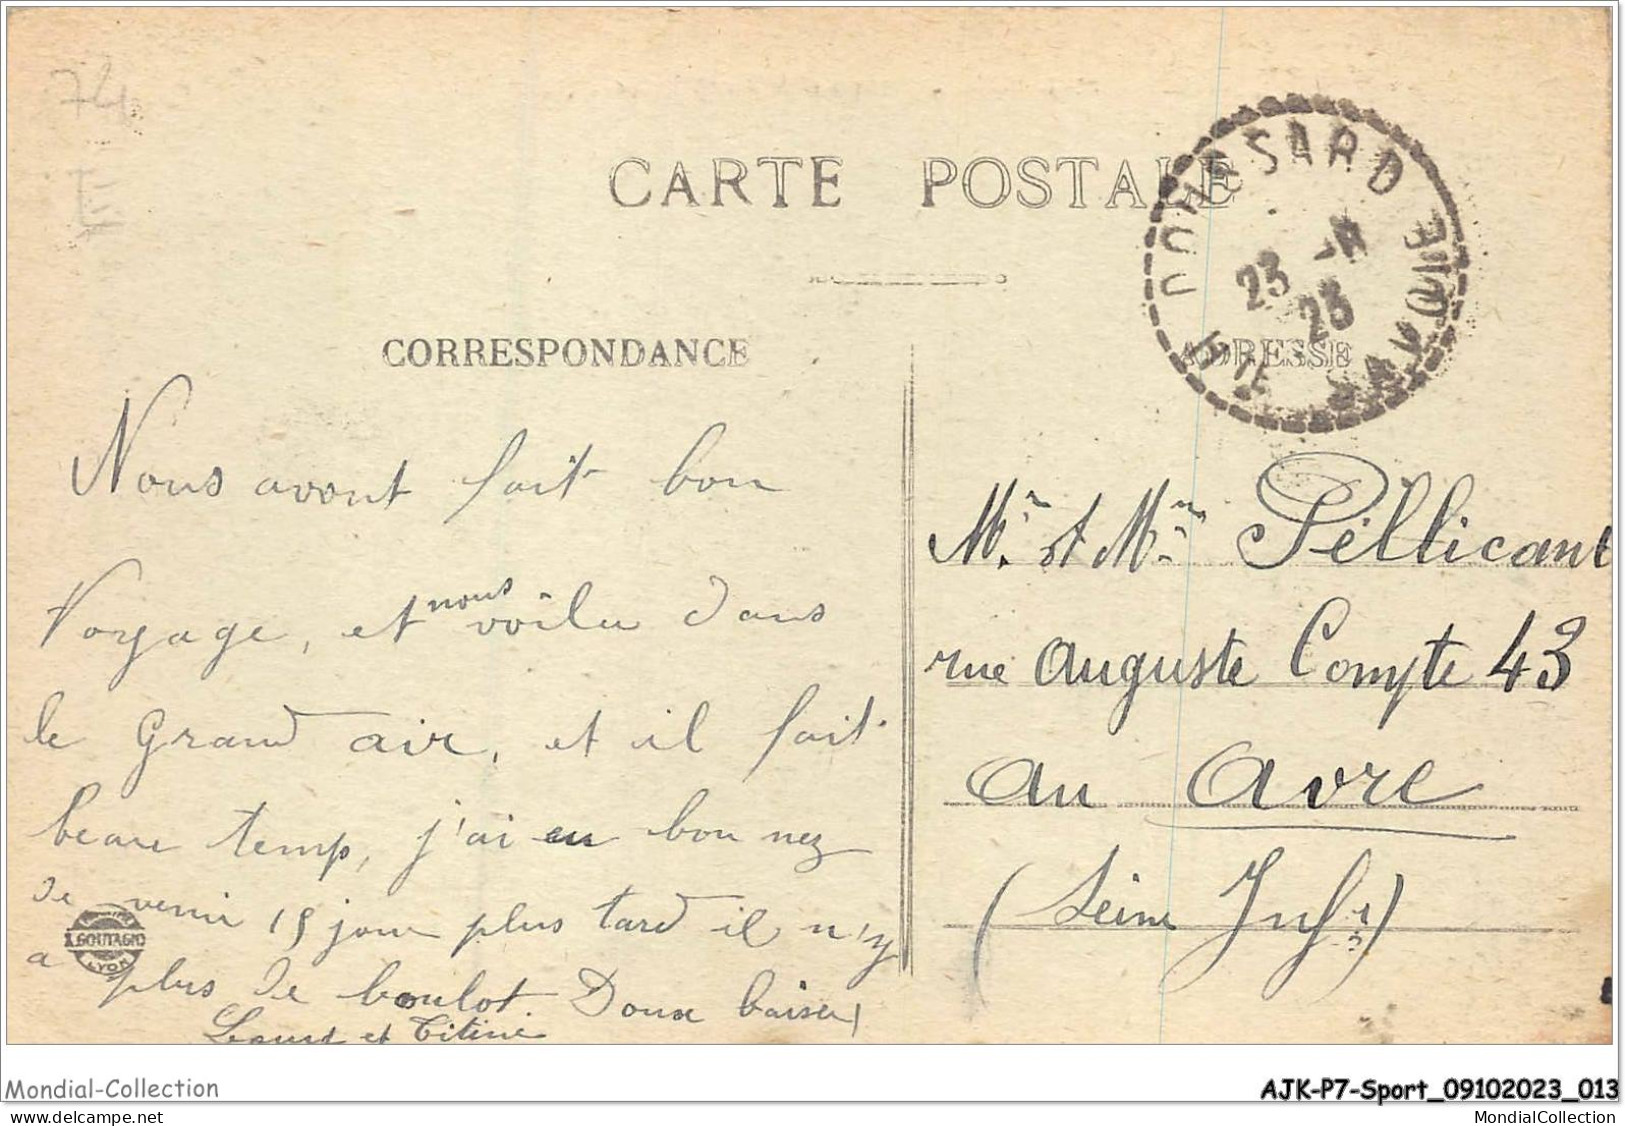 74
E
CARTE POSTALE
COUSSARD
HTE SAVOIE
23 -11
23
CORRESPONDANCE
ADRESSE
Nous avont fait bon
Voyage, et nous voila dans
le Grand air, et il fait
beau temp, j'ai eu bon nez
de venir 15 jour plus tard il n'y
a plus de boulot. Doux baiser
et Titine
GOUTAGNY
LYON
Mr et Mme Péllicant
rue Auguste Compte 43
au Avre
(Seine Infre)
Mondial-Collection
AJK-P7-Sport_09102023_013
Mondial-Collection.com
MondialCollection